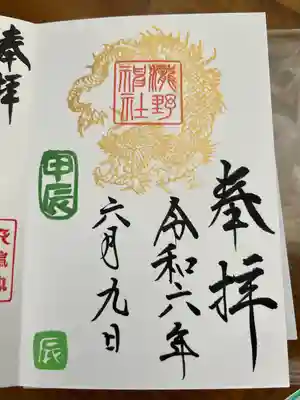 奉拝
令和六年
瀧野
神社
六月九日
甲辰
辰
奉拝